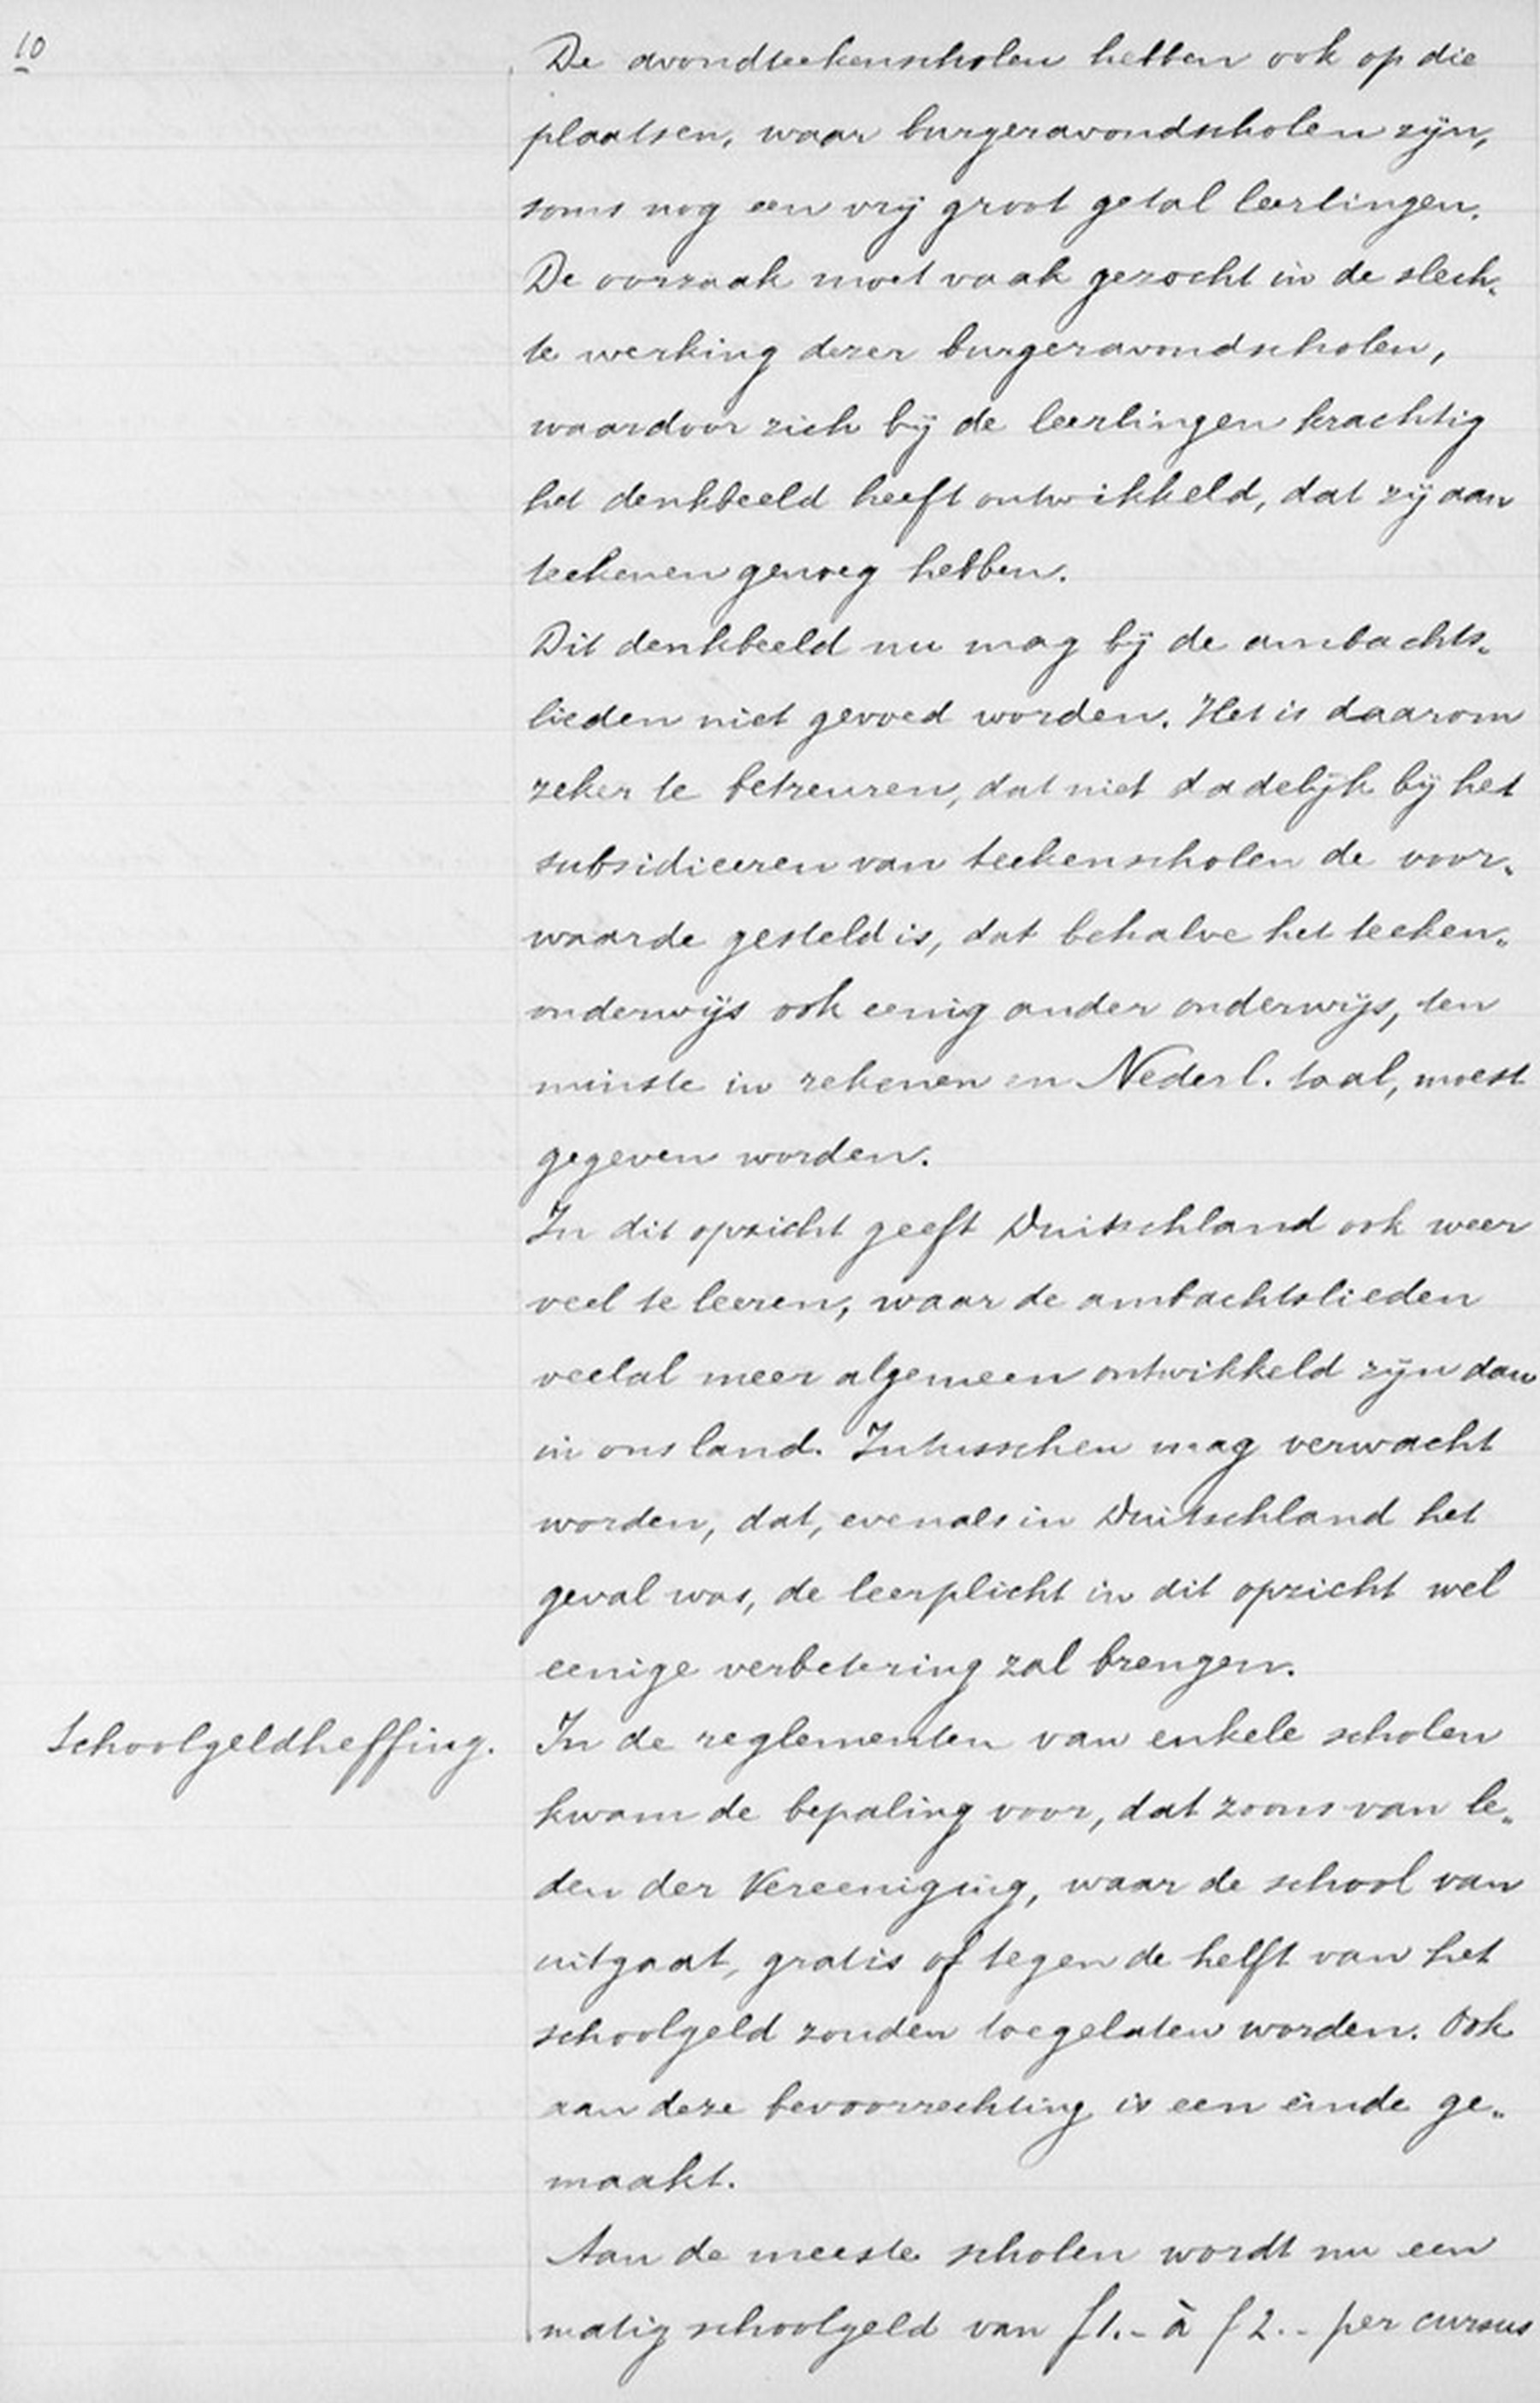 10
De avondteekenscholen hebben ook op die
plaatsen, waar burgeravondscholen zijn,
soms nog een vrij groot getal leerlingen.
De oorzaak moet vaak gezocht in de slech„
te werking dezer burgeravondscholen,
waardoor zich bij de leerlingen krachtig
het denkbeeld heeft ontwikkeld, dat zij aan
teekenen genoeg hebben.
Dit denkbeeld nu mag bij de ambachts„
lieden niet gevoed worden. Het is daarom
zeker te betreuren, dat niet dadelijk bij het
subsidieeren van teekenscholen de voor„
waarde gesteld is, dat behalve het teeken„
onderwijs ook eenig ander onderwijs, ten
minste in rekenen en Nederl. taal, moest
gegeven worden.
In dit opzicht geeft Duitschland ook weer
veel te leeren, waar de ambachtslieden
veelal meer algemeen ontwikkeld zijn dan
in ons land. Intusschen mag verwacht
worden, dat, evenals in Duitschland het
geval was, de leerplicht in dit opzicht wel
eenige verbetering zal brengen.
Schoolgeldheffing.
In de reglementen van enkele scholen
kwam de bepaling voor, dat zoons van le„
den der Vereeniging, waar de school van
uitgaat, gratis of tegen de helft van het
schoolgeld zouden toegelaten worden. Ook
aan deze bevoorrechting is een einde ge„
maakt.
Aan de meeste scholen wordt nu een
matig schoolgeld van f 1.- à f 2.- per cursus